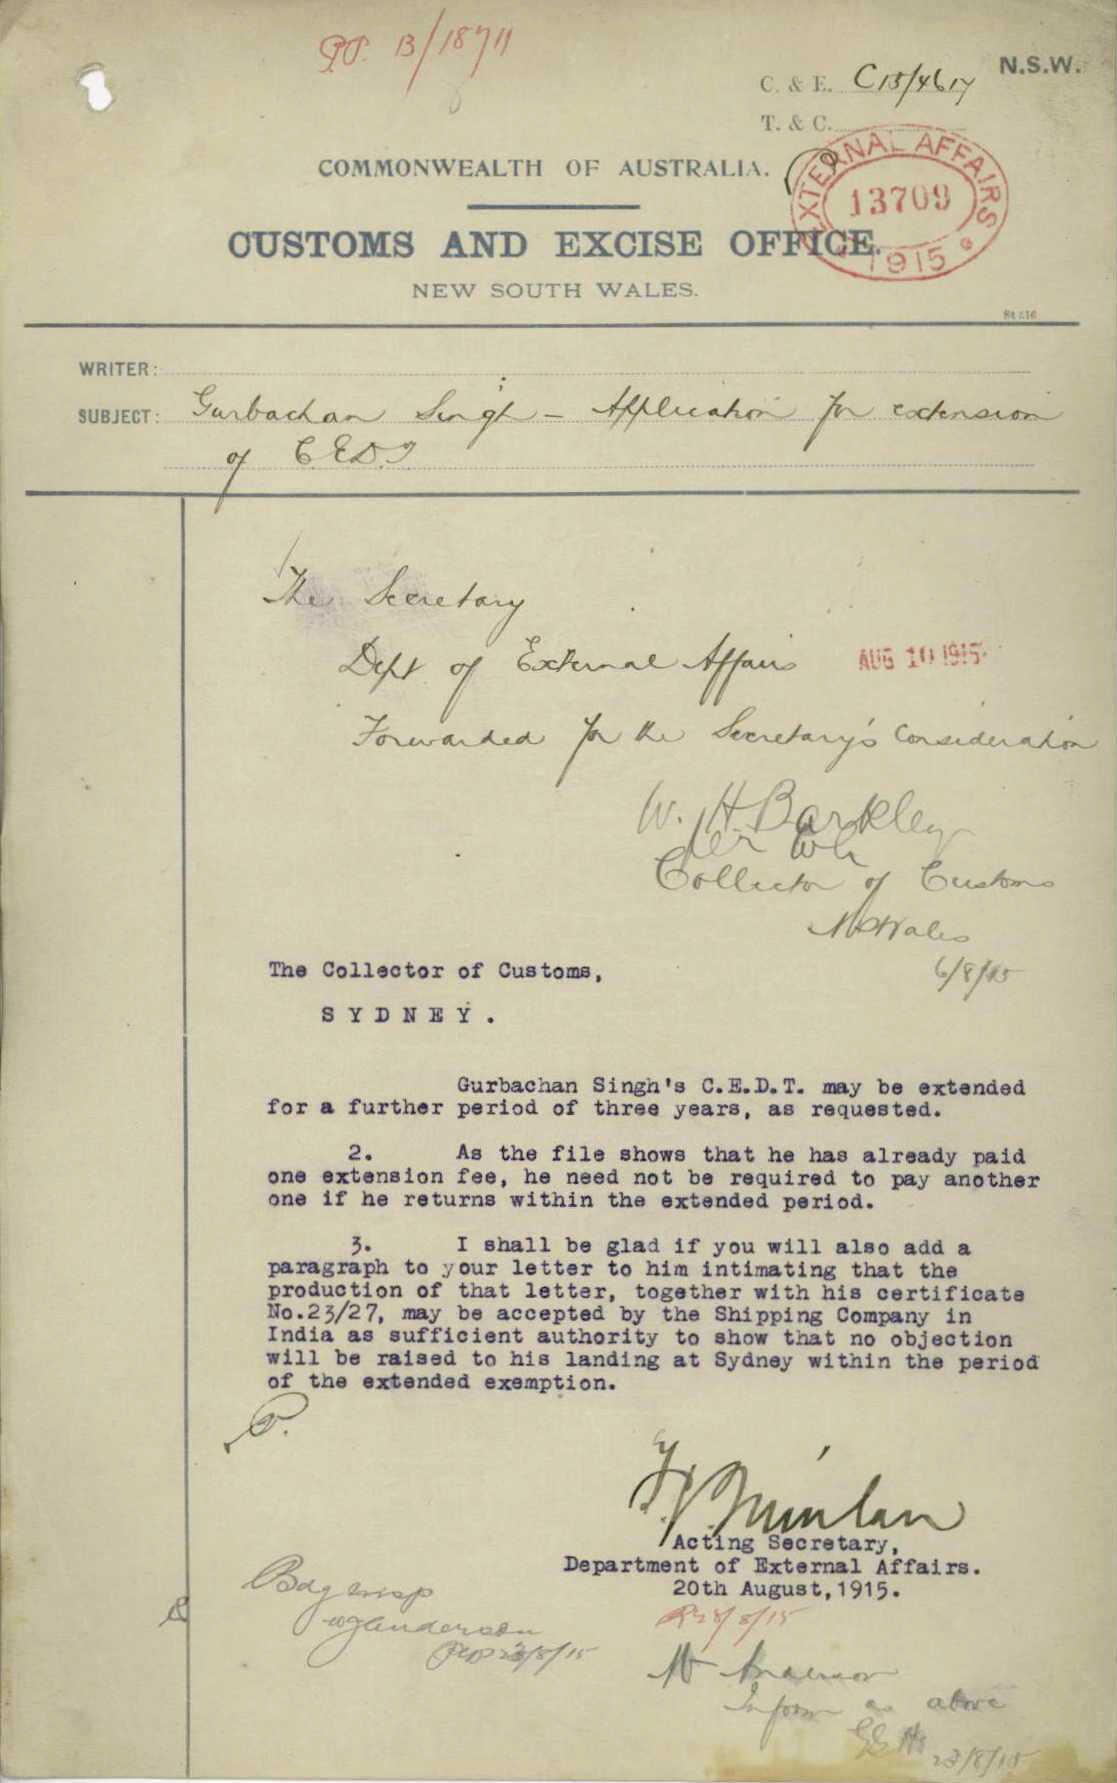 B/18711
N.S.W.
C. & E. C15/4617
T. & C.
EXTERNAL AFFAIRS
13709
1915
COMMONWEALTH OF AUSTRALIA.
CUSTOMS AND EXCISE OFFICE.
NEW SOUTH WALES.
WRITER:
SUBJECT: Gurbachan Singh - Application for extension
of C.E.D.T
The Secretary
Dept of External Affairs
AUG 10 1915
Forwarded for the Secretary's Consideration
W. H. Barkley
per
Collector of Customs
N S Wales
6/8/15
The Collector of Customs,
SYDNEY.
Gurbachan Singh's C.E.D.T. may be extended
for a further period of three years, as requested.
2. As the file shows that he has already paid
one extension fee, he need not be required to pay another
one if he returns within the extended period.
3. I shall be glad if you will also add a
paragraph to your letter to him intimating that the
production of that letter, together with his certificate
No.23/27, may be accepted by the Shipping Company in
India as sufficient authority to show that no objection
will be raised to his landing at Sydney within the period
of the extended exemption.
P.
Acting Secretary,
Department of External Affairs.
20th August, 1915.
Anderson
23/8/15
Mr Anderson
Inform as above
23/8/15